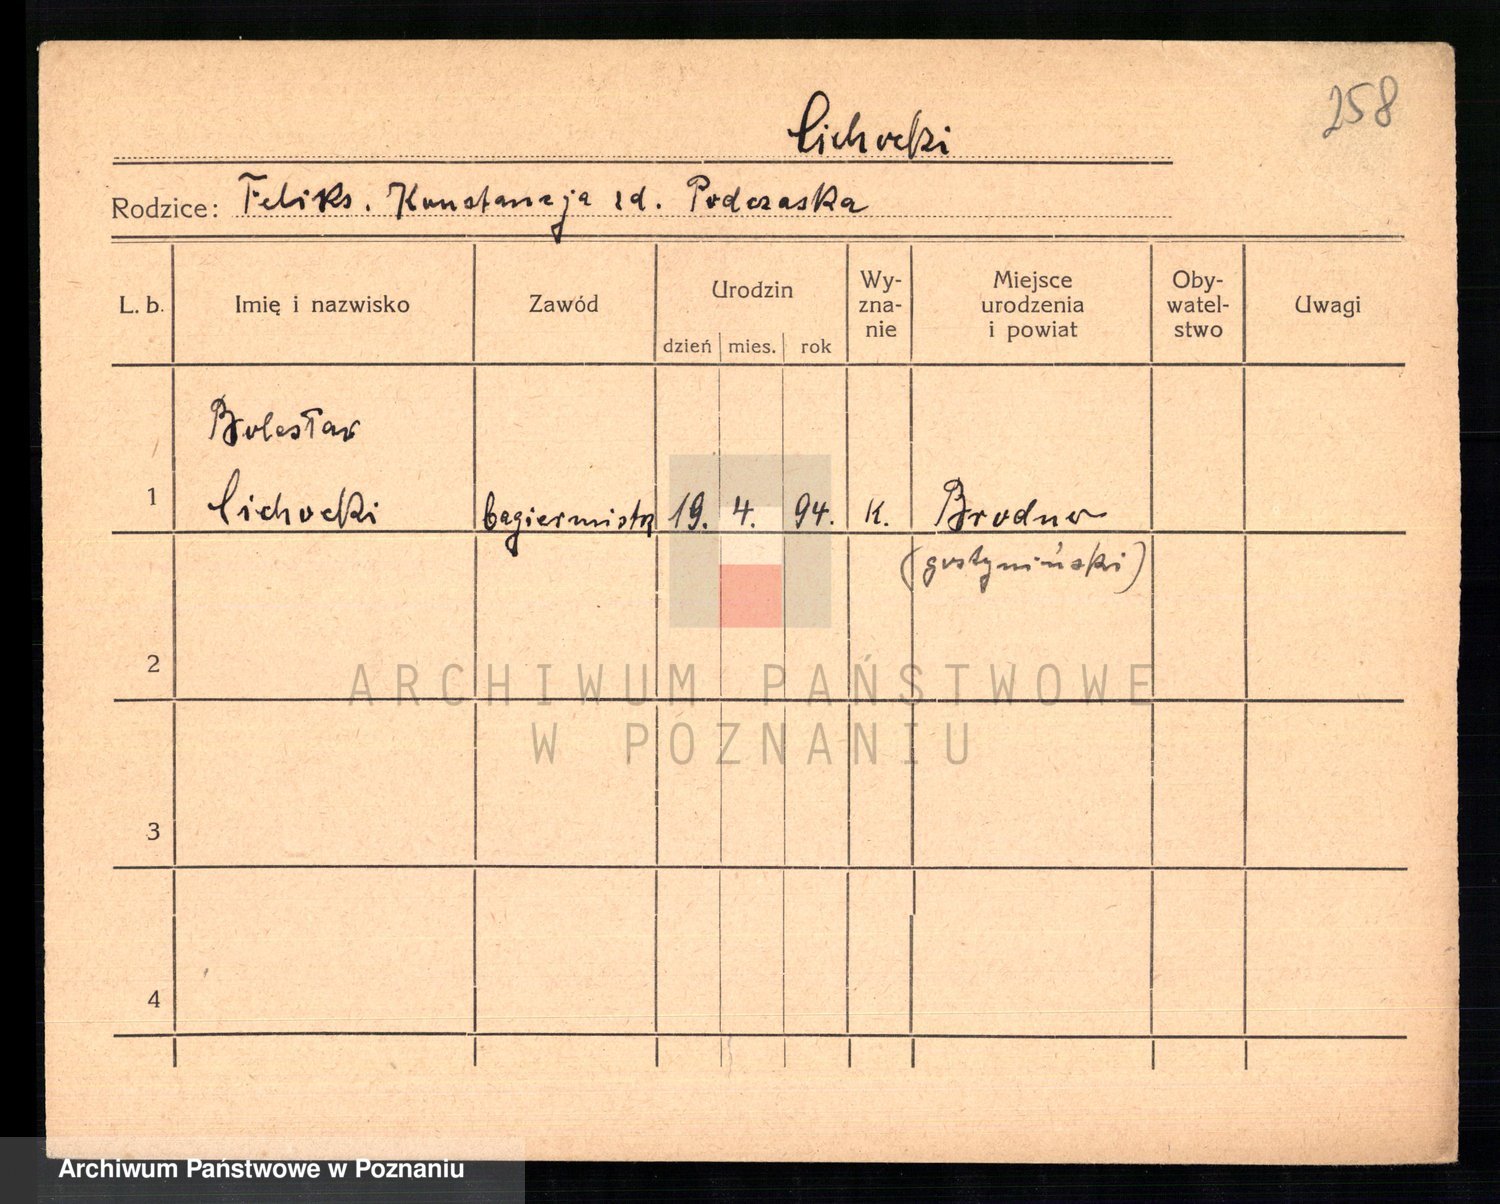 258
Cichocki
Rodzice: Feliks. Konstancja zd. Podczaska
L. b.
Imię i nazwisko
Zawód
Urodzin
dzień
mies.
rok
Wy-
zna-
nie
Miejsce
urodzenia
i powiat
Oby-
watel-
stwo
Uwagi
Bolesław
1 Cichocki bagiermistrz 19. 4. 94. K. Brodno
(gostyniński)
2
3
4
ARCHIWUM PAŃSTWOWE
W POZNANIU
Archiwum Państwowe w Poznaniu